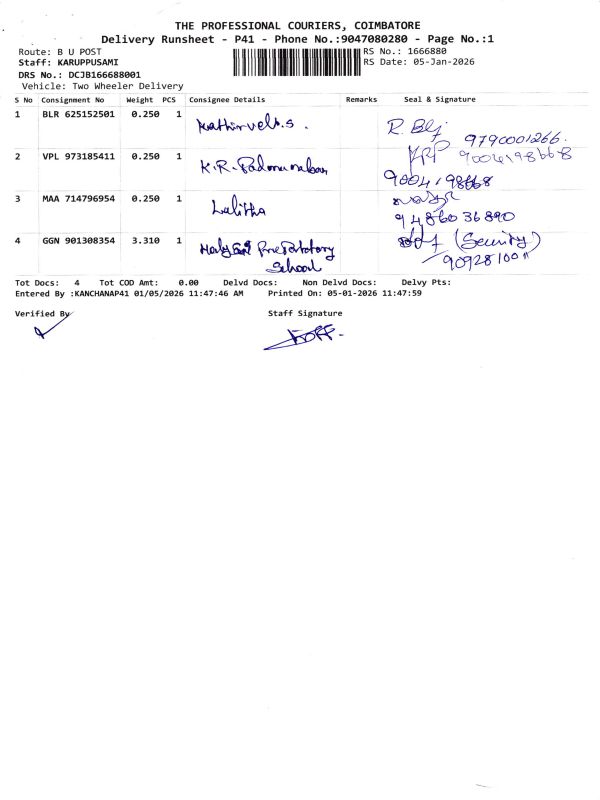 THE PROFESSIONAL COURIERS, COIMBATORE
Delivery Runsheet - P41 - Phone No.:9047080280 - Page No.:1
Route: B U POST RS No.: 1666880
Staff: KARUPPUSAMI RS Date: 05-Jan-2026
DRS No.: DCJB166688001
Vehicle: Two Wheeler Delivery
S No Consignment No Weight PCS Consignee Details Remarks Seal & Signature
1 BLR 625152501 0.250 1 Kathirvel.s. R. 9790001266.
2 VPL 973185411 0.250 1 K.R. Padmanaban KRP 9004198668
9004198668
3 MAA 714796954 0.250 1 Lalitha
9486036890
4 GGN 901308354 3.310 1 (Security)
School
Tot Docs: 4 Tot COD Amt: 0.00 Delvd Docs: Non Delvd Docs: Delvy Pts:
Entered By :KANCHANAP41 01/05/2026 11:47:46 AM Printed On: 05-01-2026 11:47:59
Verified By Staff Signature